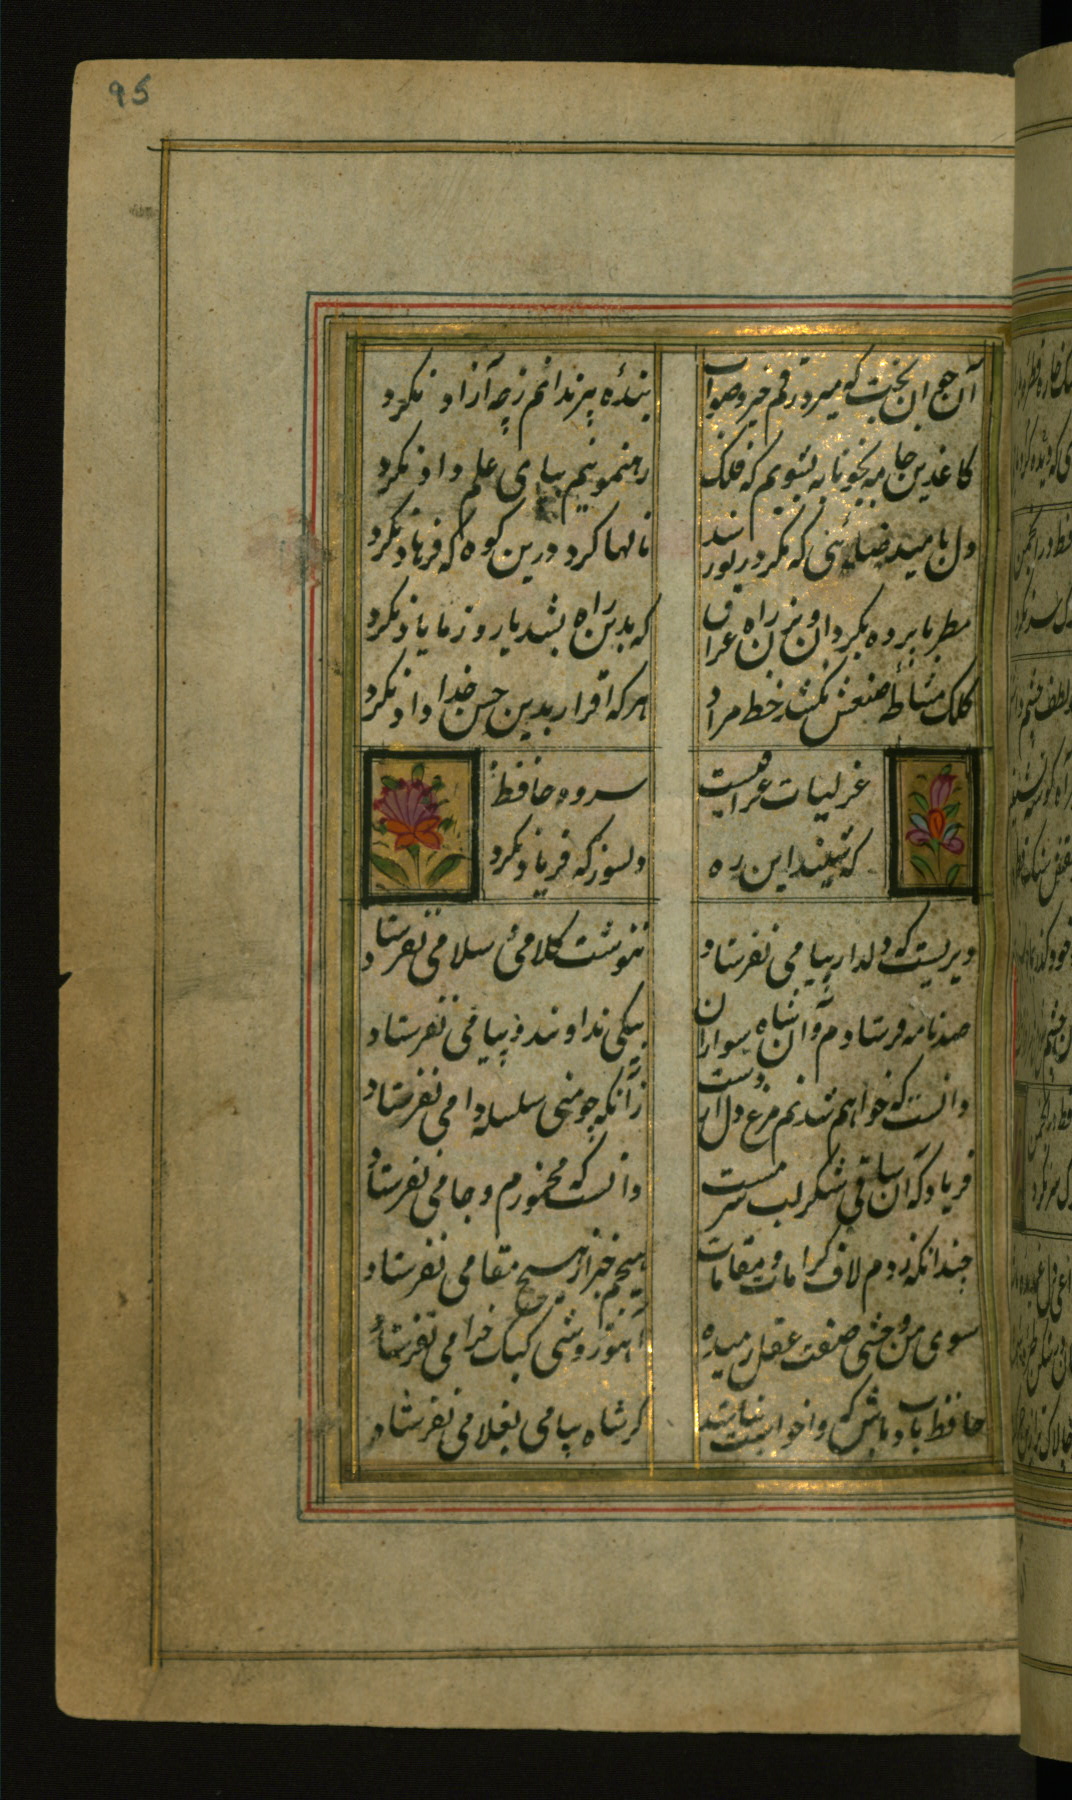 95
آن جوان بخت که میزد رقم خیر و صواب
بندهٔ پیر ندانم ز چه آزاد نکرد
کاغذین جامه بخونابه بشویم که فلک
رهنمونیم بپای علم داد نکرد
دل بامید صدائی که مگر در تو رسد
نالها کرد درین کوه که فرهاد نکرد
مطربا پرده بگردان و بزن راه عراق
که بدین راه بشد یار و ز ما یاد نکرد
کلک مشاطهٔ صنعش نکشد خط مراد
هر که اقرار بدین حسن خدا داد نکرد
غزلیات عراقیست سرود حافظ
که شنید این ره دلسوز که فریاد نکرد
دیریست که دلدار پیامی نفرستاد
ننوشت کلامی و سلامی نفرستاد
صد نامه فرستادم و آن شاه سواران
پیکی ندوانید و پیامی نفرستاد
دانست که خواهد شدنم مرغ دل از دست
زانکه چو منی سلسله دامی نفرستاد
فریاد که آن ساقی شکر لب سرمست
دانست که مخمورم و جامی نفرستاد
چندانکه زدم لاف کرامات و مقامات
هیچم خبر از هیچ مقامی نفرستاد
سوی من وحشی صفت عقل رمیده
آهو روشی کبک خرامی نفرستاد
حافظ بادب باش که واخواست نباشد
گر شاه پیامی بغلامی نفرستاد